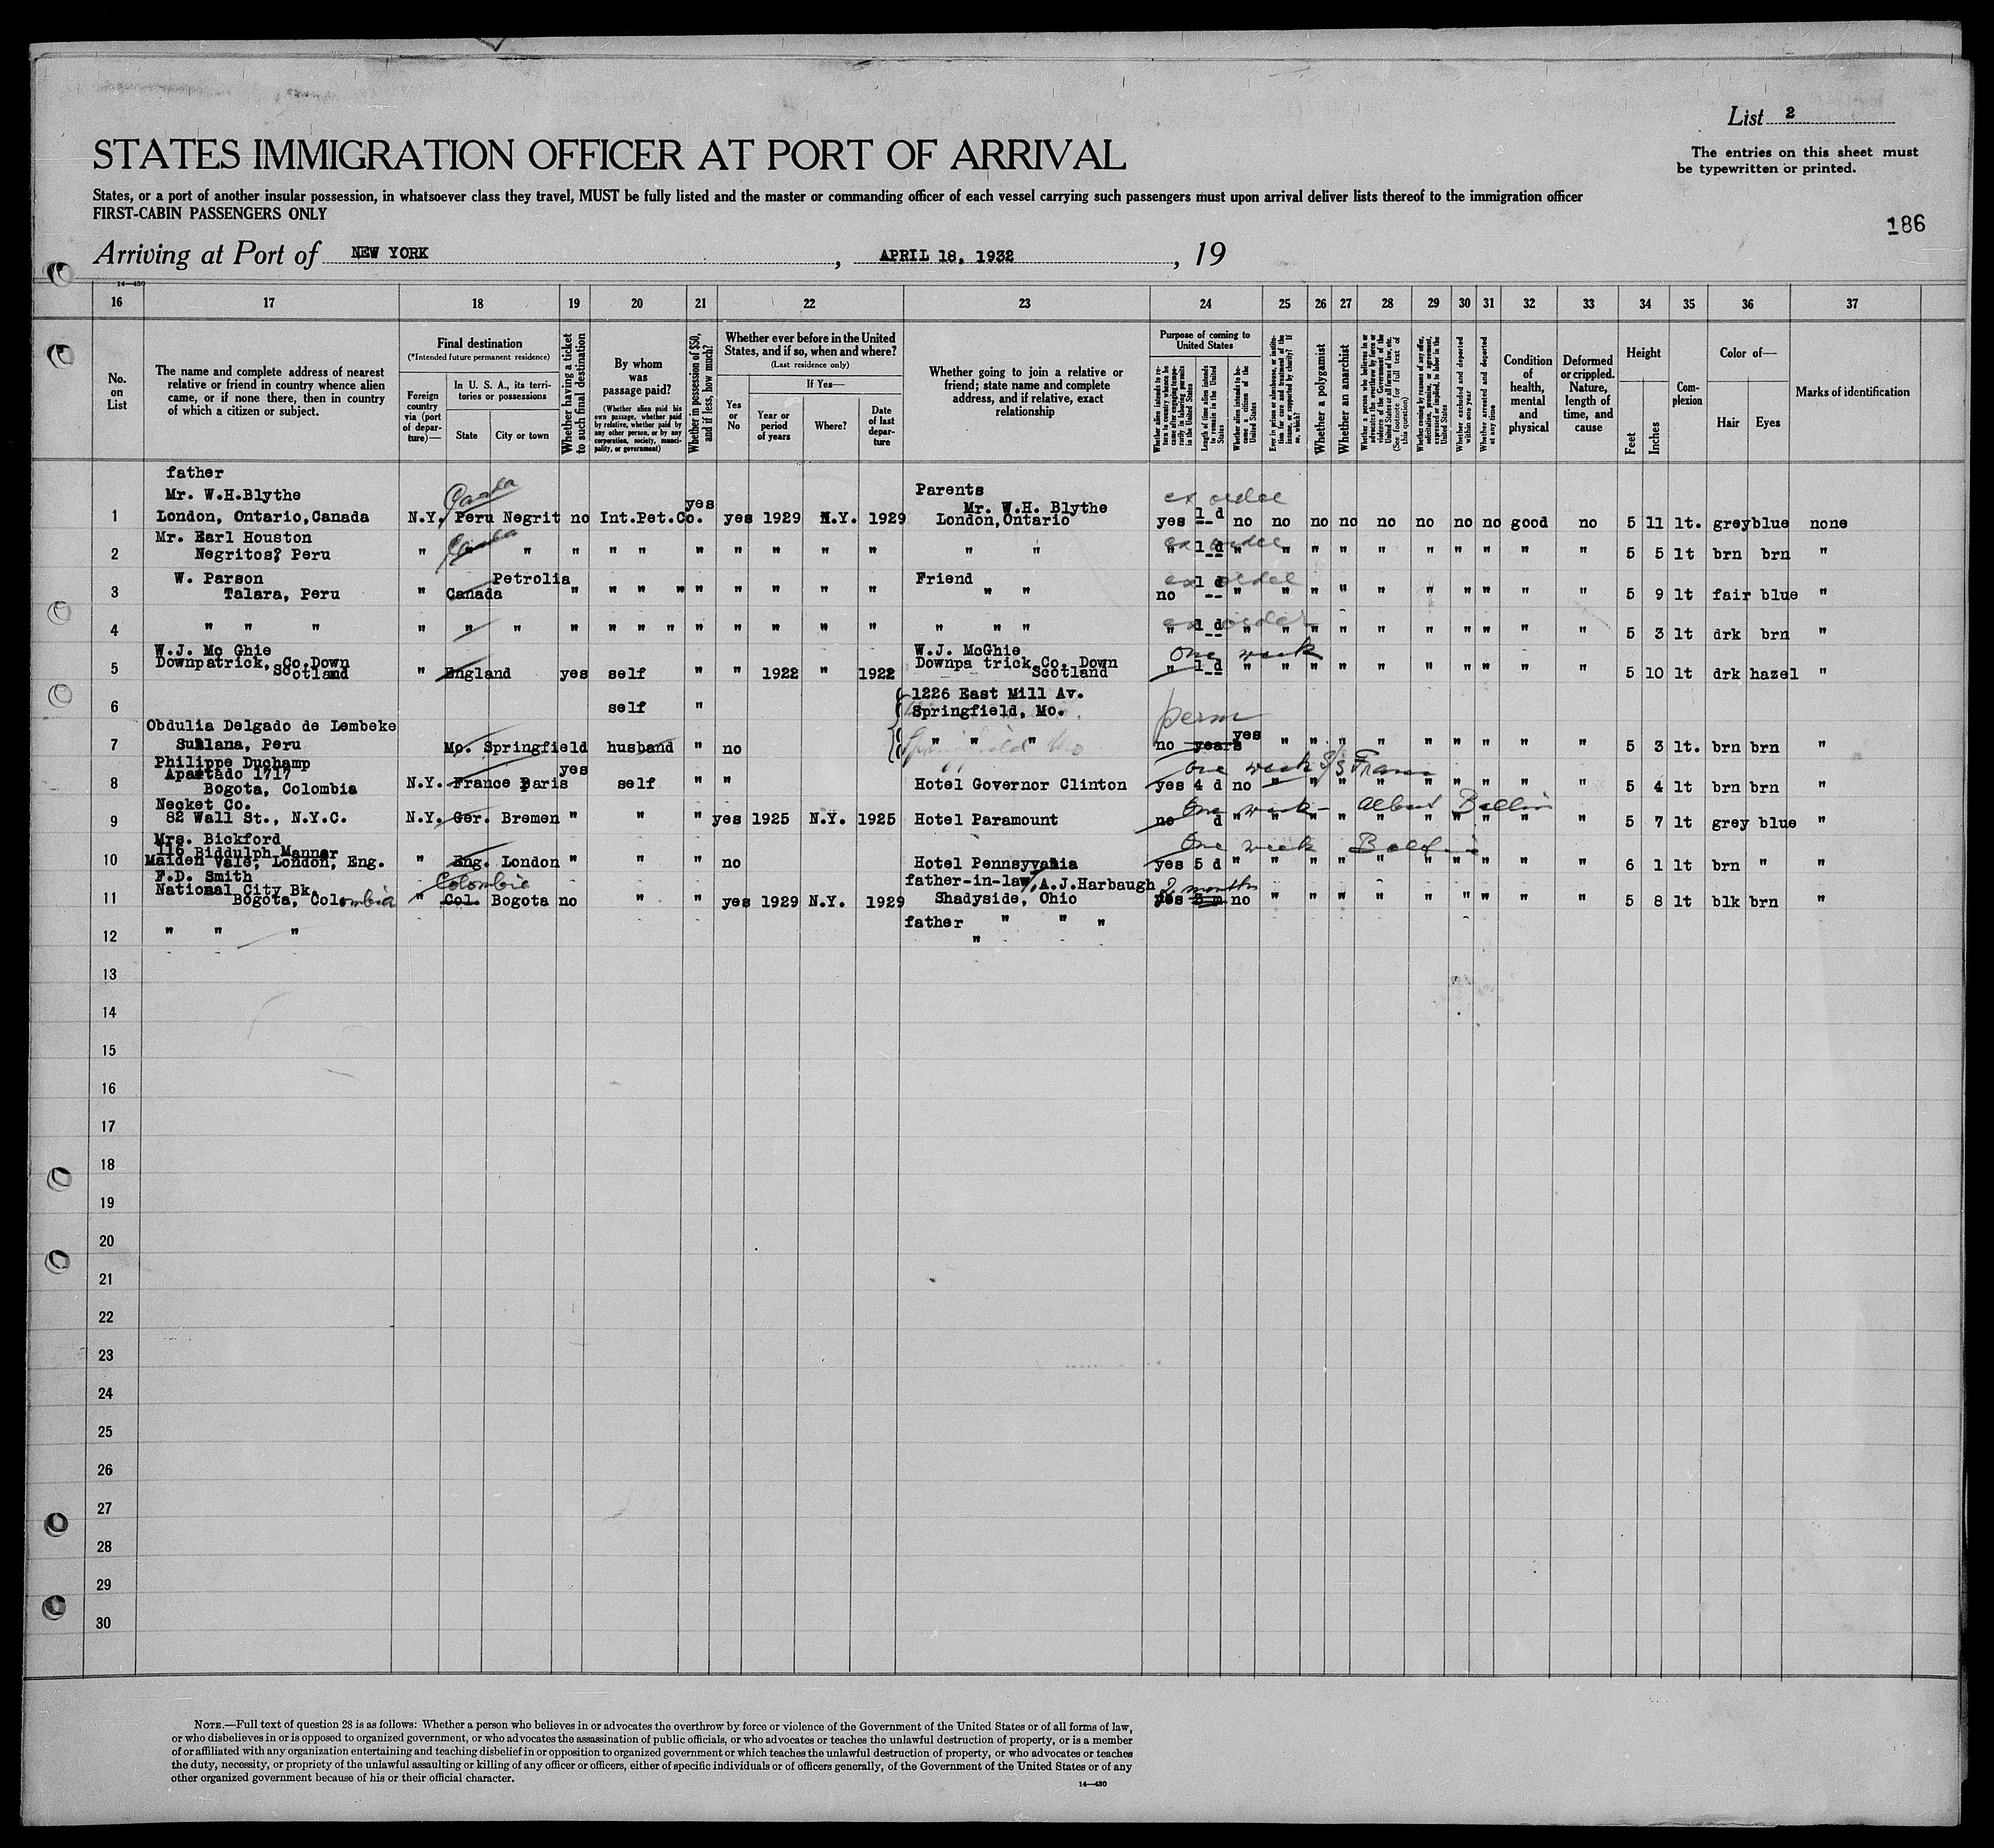 List 2
STATES IMMIGRATION OFFICER AT PORT OF ARRIVAL
The entries on this sheet must
be typewritten or printed.
States, or a port of another insular possession, in whatsoever class they travel, MUST be fully listed and the master or commanding officer of each vessel carrying such passengers must upon arrival deliver lists thereof to the immigration officer
FIRST-CABIN PASSENGERS ONLY
186
Arriving at Port of NEW YORK, APRIL 18, 1932, 19
14—430
16 17 18 19 20 21 22 23 24 25 26 27 28 29 30 31 32 33 34 35 36 37
No. on List
The name and complete address of nearest relative or friend in country whence alien came, or if none there, then in country of which a citizen or subject.
Final destination
(*Intended future permanent residence)
Foreign country via (port of departure)—
In U. S. A., its territories or possessions
State City or town
Whether having a ticket to such final destination
By whom was passage paid?
(Whether alien paid his own passage, whether paid by relative, whether paid by any other person, or by any corporation, society, municipality, or government)
Whether in possession of $50, and if less, how much?
Whether ever before in the United States, and if so, when and where?
(Last residence only)
Yes or No
If Yes—
Year or period of years
Where?
Date of last departure
Whether going to join a relative or friend; state name and complete address, and if relative, exact relationship
Purpose of coming to United States
Whether alien intends to return to country whence he came after engaging temporarily in laboring pursuits in the United States
Length of time alien intends to remain in the United States
Whether alien intends to become a citizen of the United States
Ever in prison or almshouse, or institution for care and treatment of the insane, or supported by charity? If so, which?
Whether a polygamist
Whether an anarchist
Whether a person who believes in or advocates the overthrow by force or violence of the Government of the United States or all forms of law, etc. (See footnote for full text of this question)
Whether coming by reason of any offer, solicitation, promise, or agreement, expressed or implied, to labor in the United States
Whether excluded and deported within one year
Whether arrested and deported at any time
Condition of health, mental and physical
Deformed or crippled. Nature, length of time, and cause
Height
Feet Inches
Complexion
Color of—
Hair Eyes
Marks of identification
father Parents
Mr. W.H.Blythe Canada yes Mr. W.H. Blythe ex order
1 London, Ontario,Canada N.Y. Peru Negrit no Int.Pet.Co. yes 1929 N.Y. 1929 London,Ontario yes 1 d no no no no no no no no good no 5 11 lt. grey blue none
Mr. Earl Houston Canada ex order
2 Negritos, Peru " " " " " " " " " " " " " " 1 d " " " " " " " " " " 5 5 lt brn brn "
W. Parson Petrolia Friend ex order
3 Talara, Peru " Canada " " " " " " " " " " " no 1 d " " " " " " " " " " 5 9 lt fair blue "
ex order
4 " " " " " " " " " " " " " " " " " " " 1 d " " " " " " " " " " 5 3 lt drk brn "
W.J. Mc Ghie W.J. McGhie one week
5 Downpatrick, Co.Down Scotland " England yes self " " 1922 " 1922 Downpa trick,Co. Down Scotland " 1 d " " " " " " " " " " 5 10 lt drk hazel "
1226 East Mill Av.
6 self " Springfield, Mo.
Obdulia Delgado de Lembeke perm
7 Sullana, Peru Mo. Springfield husband " no " " " Springfield Mo no years yes " " " " " " " " " 5 3 lt. brn brn "
Philippe Duchamp
Apartado 1717 yes one week S/S France
8 Bogota, Colombia N.Y. France Paris self " " Hotel Governor Clinton yes 4 d no " " " " " " " " " 5 4 lt brn brn "
Necket Co. One week - Albert Ballin
9 82 Wall St., N.Y.C. N.Y. Ger. Bremen " " " yes 1925 N.Y. 1925 Hotel Paramount no d " " " " " " " " " " 5 7 lt grey blue "
Mrs. Bickford
116 Biddulph Manner One week
10 Maiden Vale, London, Eng. " Eng. London " " " no Hotel Pennsyvania yes 5 d " " " " " " " " " " 6 1 lt brn " "
F.D. Smith Colombia father-in-law/A.J.Harbaugh 2 months
11 National City Bk. Bogota, Colombia " Col. Bogota no " " yes 1929 N.Y. 1929 Shadyside, Ohio yes 3 m no " " " " " " " " " 5 8 lt blk brn "
12 " " " father " " " "
13
14
15
16
17
18
19
20
21
22
23
24
25
26
27
28
29
30
NOTE.—Full text of question 28 is as follows: Whether a person who believes in or advocates the overthrow by force or violence of the Government of the United States or of all forms of law,
or who disbelieves in or is opposed to organized government, or who advocates the assassination of public officials, or who advocates or teaches the unlawful destruction of property, or is a member
of or affiliated with any organization entertaining and teaching disbelief in or opposition to organized government or which teaches the unlawful destruction of property, or who advocates or teaches
the duty, necessity, or propriety of the unlawful assaulting or killing of any officer or officers, either of specific individuals or of officers generally, of the Government of the United States or of any
other organized government because of his or their official character.
14—430